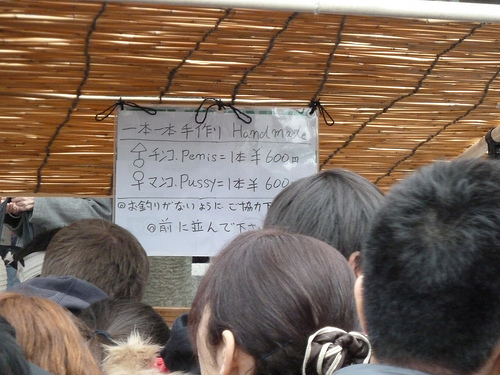 一本一本手作り Handmade
♂チンコ.Penis=1本¥600円
♀マンコ.Pussy=1本¥600
◎お釣りがないようにご協力下
◎前に並んで下さ